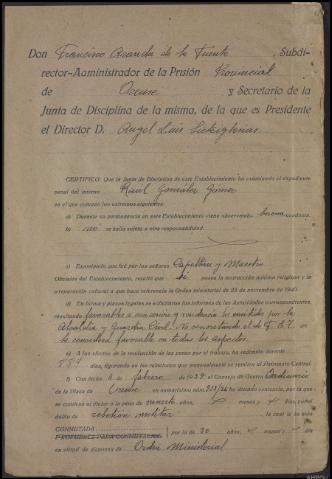 Don Francisco Aranda de la Fuente, Subdi-
rector-Administrador de la Prisión Provincial
de Orense y Secretario de la
Junta de Disciplina de la misma, de la que es Presidente
el Director D. Angel Luis
CERTIFICO: Que la Junta de Disciplina de este Establecimiento ha examinado el expediente
penal del interno Raúl González Gómez
en el que constan los extremos siguientes:
a) Durante su permanencia en este Establecimiento viene observando buena conducta.
b) no se halla sujeto a otra responsabilidad
c) Examinado que fué por los señores Capellán y Maestro
Oficiales del Establecimiento, resultó que si posee la instrucción mínima religiosa y
la preparación cultural a que hace referencia la Orden ministerial de
d) En forma y plazos legales se solicitaron los informes de las Autoridades correspondientes,
resultando favorables a su
Alcaldía y Guardia Civil. No constando el de F. E. T.
se considera favorable en todos los aspectos.
e) A los efectos de la rendición de las penas por el trabajo, ha redimido durante
días, figurando en las relaciones que mensualmente se remiten al Patronato Central.
f) Con fecha de febrero de 1939 el Consejo de Guerra Ordinario
de la Plaza de Orense en
se condena al titular a la pena de muerte años, meses y días
delito de rebelión militar la cual le ha sido
CONMUTADA
por la de 30 años, meses y días
en virtud de Orden Ministerial